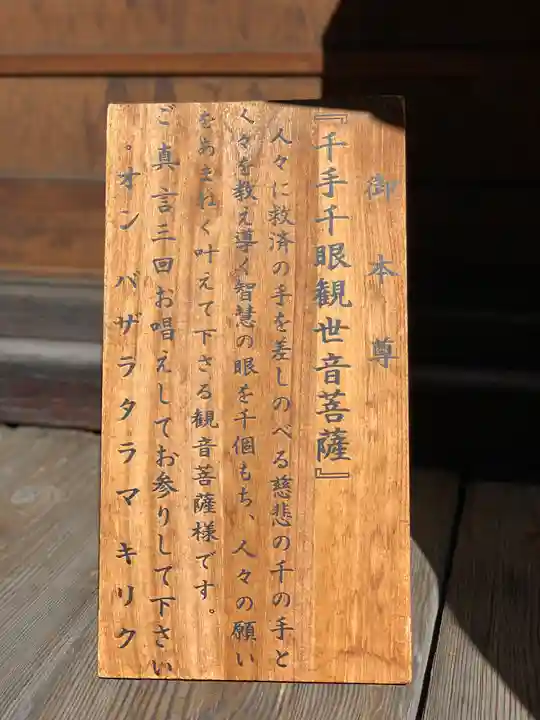 御本尊
『千手千眼観世音菩薩』
人々に救済の手を差しのべる慈悲の千の手と
人々を教え導く智慧の眼を千個もち、人々の願い
をあまねく叶えて下さる観音菩薩様です。
ご真言三回お唱えしてお参りして下さい
。オン バザラタラマ キリク